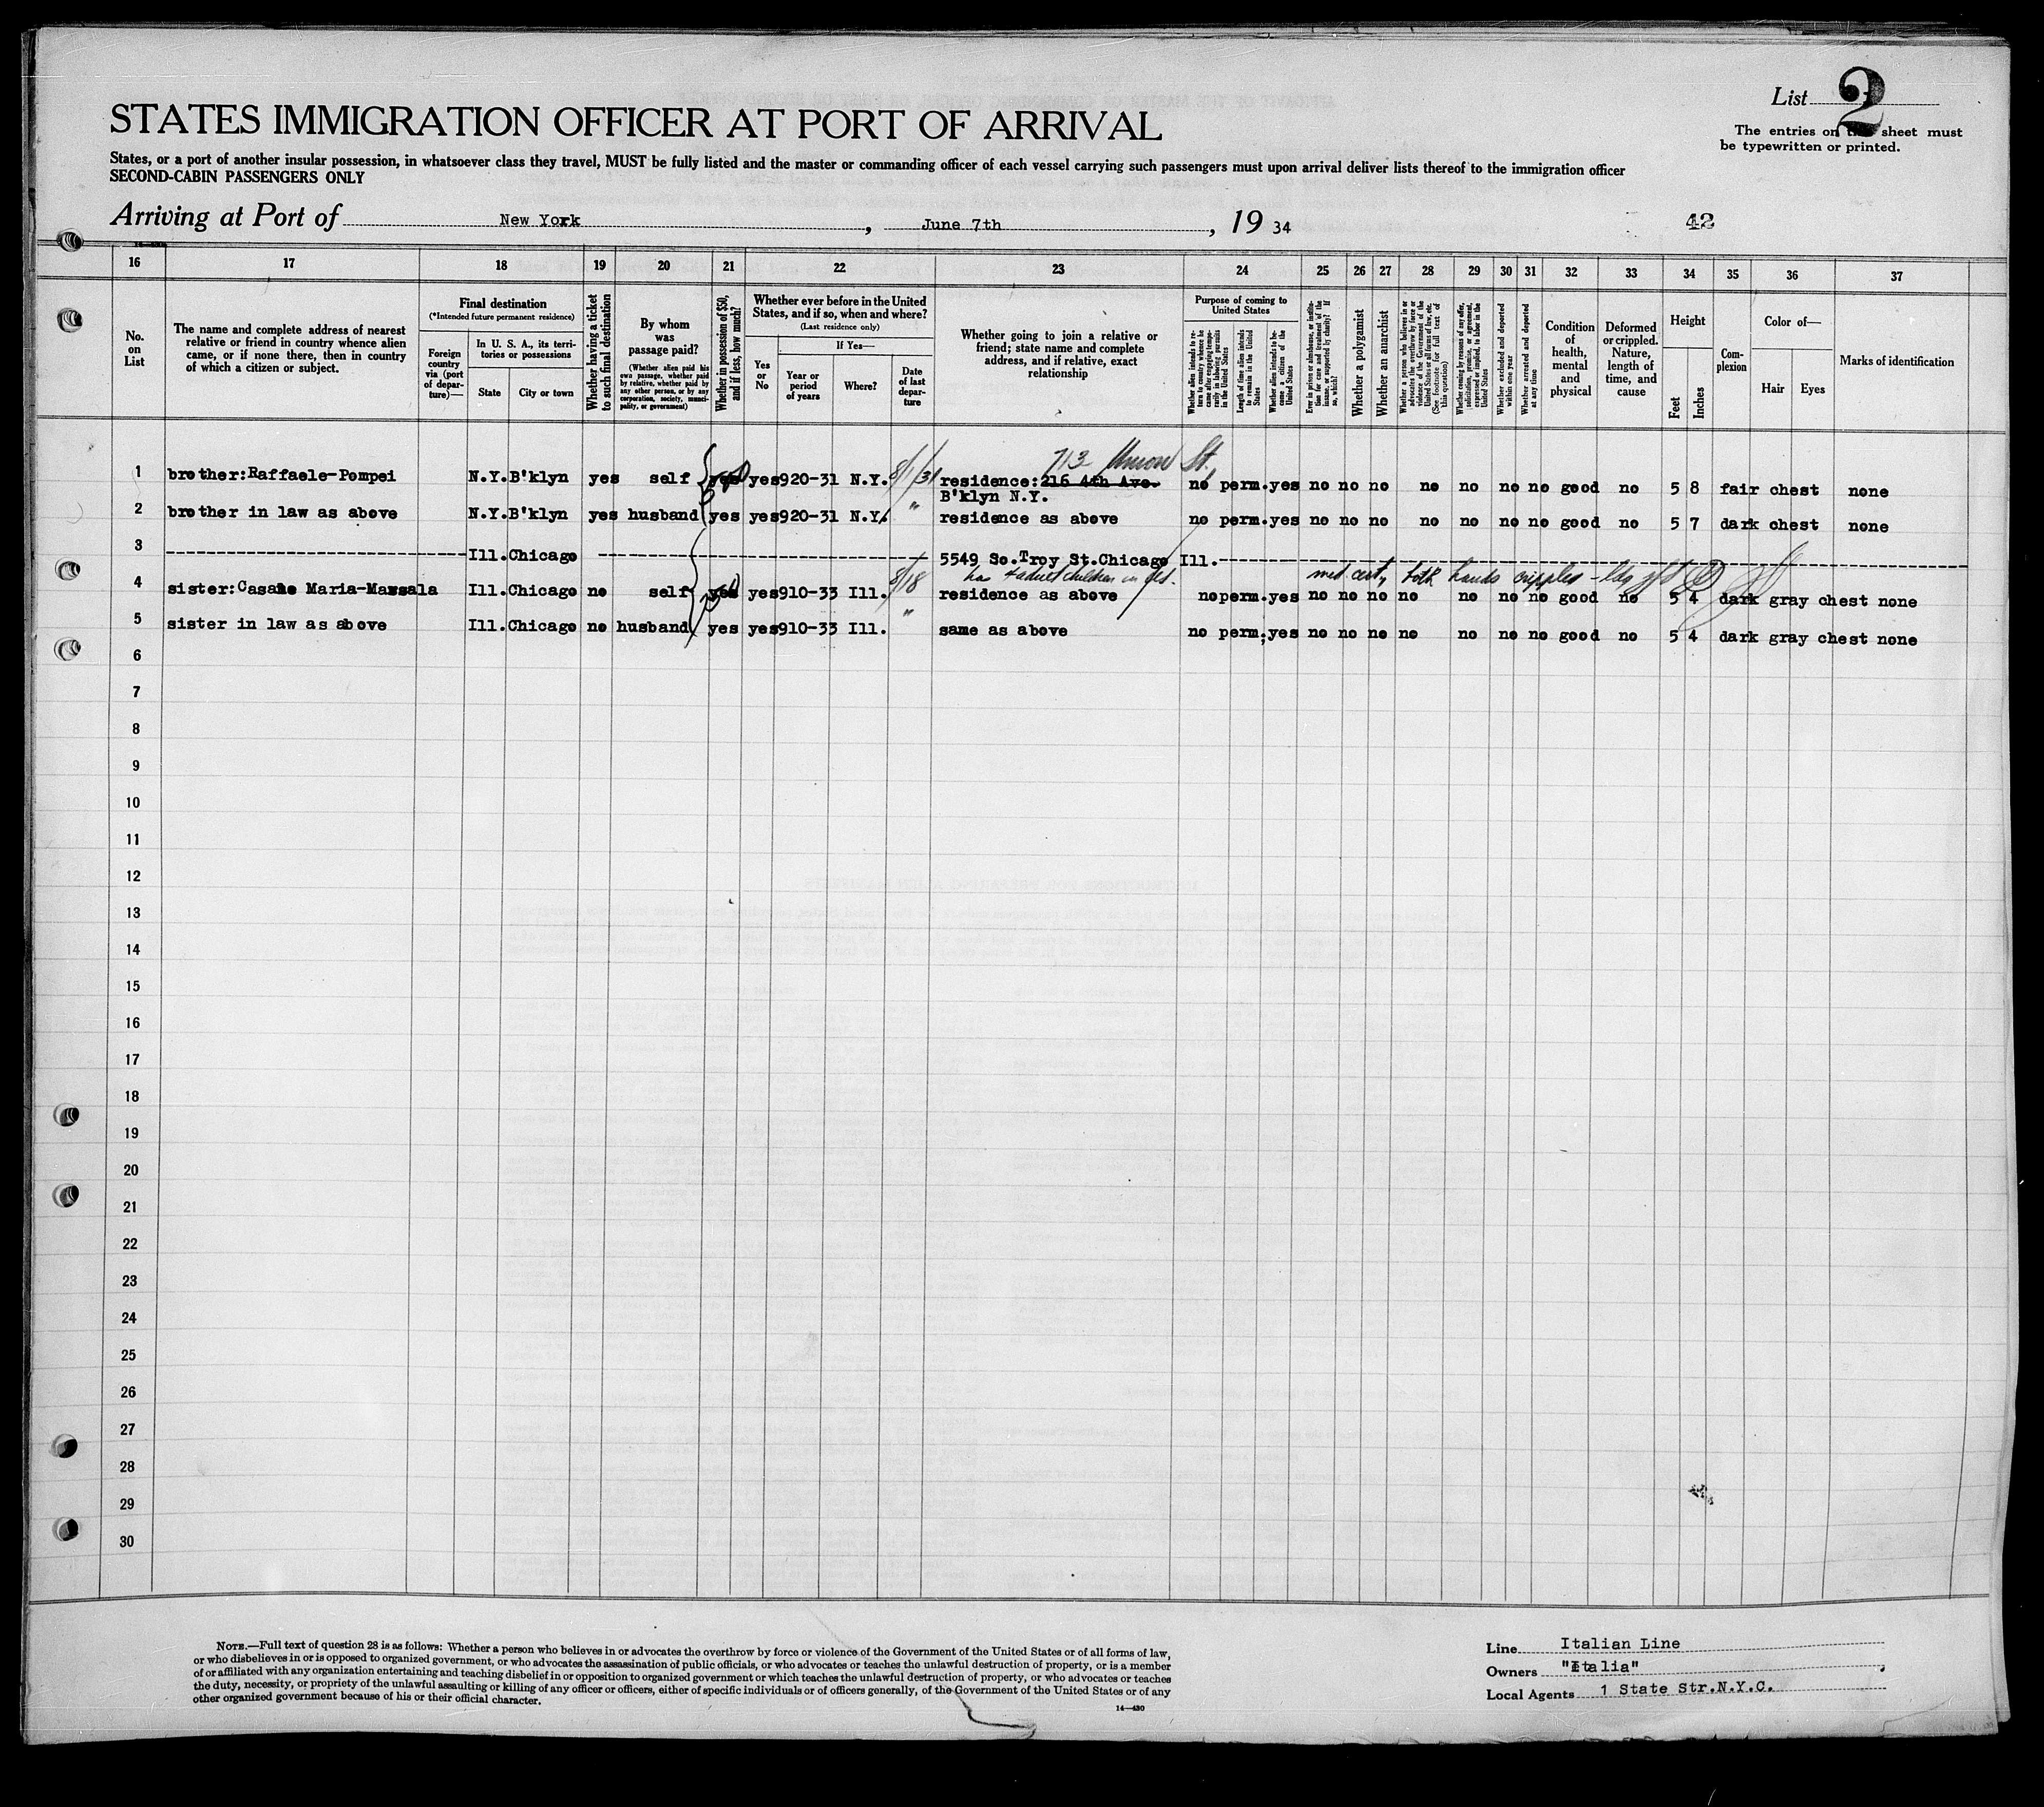 List 2
STATES IMMIGRATION OFFICER AT PORT OF ARRIVAL
The entries on this sheet must
be typewritten or printed.
States, or a port of another insular possession, in whatsoever class they travel, MUST be fully listed and the master or commanding officer of each vessel carrying such passengers must upon arrival deliver lists thereof to the immigration officer
SECOND-CABIN PASSENGERS ONLY
Arriving at Port of New York, June 7th, 19 34
42
16 17 18 19 20 21 22 23 24 25 26 27 28 29 30 31 32 33 34 35 36 37
No. on List
The name and complete address of nearest
relative or friend in country whence alien
came, or if none there, then in country
of which a citizen or subject.
Final destination
(*Intended future permanent residence)
Foreign country via (port of departure)—
In U. S. A., its territories or possessions
State
City or town
Whether having a ticket to such final destination
By whom was passage paid?
(Whether alien paid his own passage, whether paid by relative, whether paid by any other person, or by any corporation, society, municipality, or government)
Whether in possession of $50, and if less, how much?
Whether ever before in the United States, and if so, when and where?
(Last residence only)
Yes or No
If Yes—
Year or period of years
Where?
Date of last departure
Whether going to join a relative or
friend; state name and complete
address, and if relative, exact
relationship
Purpose of coming to United States
Whether alien intends to return to country whence he came after engaging temporarily in laboring pursuits in the United States
Length of time alien intends to remain in the United States
Whether alien intends to become a citizen of the United States
Ever in prison or almshouse, or institution for care and treatment of the insane, or supported by charity? If so, which?
Whether a polygamist
Whether an anarchist
Whether a person who believes in or advocates the overthrow by force or violence of the Government of the United States or all forms of law, etc. (See footnote for full text of this question)
Whether coming by reasons of any offer, solicitation, promise, or agreement, expressed or implied, to labor in the United States
Whether excluded and deported within one year
Whether arrested and deported at any time
Condition of health, mental and physical
Deformed or crippled. Nature, length of time, and cause
Height
Feet
Inches
Complexion
Color of—
Hair
Eyes
Marks of identification
713 Union St.,
1 brother:Raffaele-Pompei N.Y. B'klyn yes self yes yes 920-31 N.Y. 8/1/31 residence:216 4th Ave. no perm. yes no no no no no no no good no 5 8 fair chest none
B'klyn N.Y.
2 brother in law as above N.Y. B'klyn yes husband yes yes 920-31 N.Y. " residence as above no perm. yes no no no no no no no good no 5 7 dark chest none
3 Ill. Chicago 5549 So.Troy St.Chicago Ill.
has 4 adult children in med cert, both hands cripples
4 sister: Maria-Marsala Ill. Chicago no self yes yes 910-33 Ill. 8/18 residence as above no perm. yes no no no no no no no good no 5 4 dark gray chest none
5 sister in law as above Ill. Chicago no husband yes yes 910-33 Ill. " same as above no perm; yes no no no no no no no good no 5 4 dark gray chest none
6
7
8
9
10
11
12
13
14
15
16
17
18
19
20
21
22
23
24
25
26
27
28
29
30
NOTE.—Full text of question 28 is as follows: Whether a person who believes in or advocates the overthrow by force or violence of the Government of the United States or of all forms of law,
or who disbelieves in or is opposed to organized government, or who advocates the assassination of public officials, or who advocates or teaches the unlawful destruction of property, or is a member
of or affiliated with any organization entertaining and teaching disbelief in or opposition to organized government or which teaches the unlawful destruction of property, or who advocates or teaches
the duty, necessity, or propriety of the unlawful assaulting or killing of any officer or officers, either of specific individuals or of officers generally, of the Government of the United States or of any
other organized government because of his or their official character.
14—430
Line Italian Line
Owners "Italia"
Local Agents 1 State Str.N.Y.C.